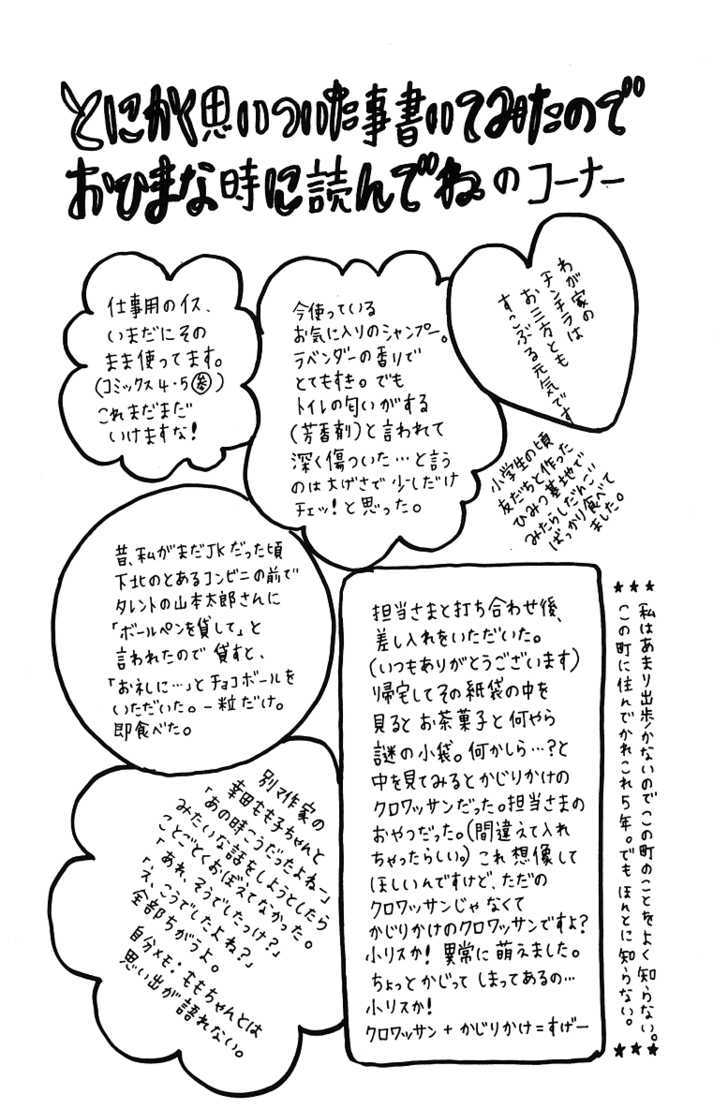 とにかく思いついた事書いてみたので
おひまな時に読んでね。のコーナー
仕事用のイス、
いまだにその
まま使ってます。
(コミックス4・5参)
これまだまだ
いけますな!
今使っている
お気に入りのシャンプー。
ラベンダーの香りで
とてもすき。でも
トイレの匂いがする
(芳香剤)と言われて
深く傷ついた…と言う
のは大げさで少しだけ
チェッ!と思った。
わが家の
チンチラは
お三方とも
すこぶる元気です
小学生の頃
友だちと作った
ひみつ基地で
みたらしだんご
ばっかり食べて
ました。
昔、私がまだJKだった頃
下北のとあるコンビニの前で
タレントの山本太郎さんに
「ボールペンを貸して」と
言われたので貸すと、
「お礼に…」とチョコボールを
いただいた。一粒だけ。
即食べた。
担当さまと打ち合わせ後、
差し入れをいただいた。
(いつもありがとうございます)
帰宅してその紙袋の中を
見るとお茶菓子と何やら
謎の小袋。何かしら…?と
中を見てみるとかじりかけの
クロワッサンだった。担当さまの
おやつだった。(間違えて入れ
ちゃったらしい。)これ想像して
ほしいんですけど、ただの
クロワッサンじゃなくて
かじりかけのクロワッサンですよ?
小リスか!異常に萌えました。
ちょっとかじってしまってあるの…
小リスか!
クロワッサン+かじりかけ=すげー
★★★私はあまり出歩かないのでこの町のことをよく知らない。
この町に住んでかれこれ5年。でもほんとに知らない。★★★
別マ作家の
幸田もも子ちゃんと
「あの時こうだったよねー」
みたいな話をしようとしたら
ことごとくおぼえてなかった。
「あれ、そうでしたっけ?」
「え、こうでしたよね?」
全部ちがうよ。
自分メモ:ももちゃんとは
思い出が語れない。